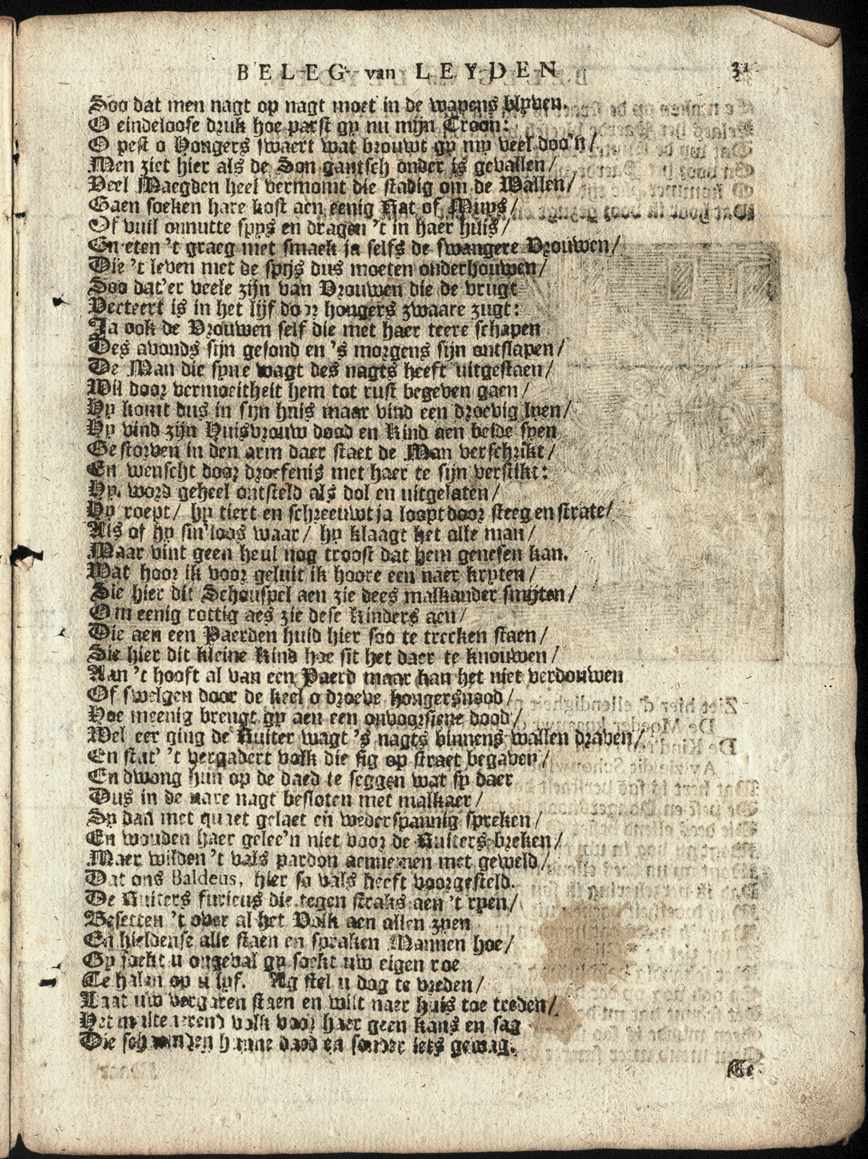 BELEG van LEYDEN 31
Soo dat men nagt op nagt moet in de wapens blyven.
O eindeloose druk hoe parst gy nu mijn Croon:
O pest o Hongers swaert wat brouwt gy my veel doo'n /
Men ziet hier als de Son gantsch onder is gevallen /
Veel Maegden heel vermomt die stadig om de Wallen /
Gaen soeken hare kost aen eenig Kat of Muys /
Of vuil onnutte spys en dragen 't in haer huis /
En eten 't graeg met smaek ja selfs de swangere Vrouwen /
Die 't leven met de spijs dus moeten onderhouwen /
Soo dat'er veele zijn van Vrouwen die de vrugt
Verteert is in het lijf door hongers zwaare zugt:
Ja ook de Vrouwen self die met haer teere schapen
Des avonds sijn gesond en 's morgens sijn ontslapen /
De Man die syne wagt des nagts heeft uitgestaen /
Wil door vermoeitheit hem tot rust begeven gaen /
Hy komt dus in sijn huis maar vind een droevig lyen /
Hy vind zijn Huisvrouw dood en Kind aen beide syen
Gestorven in den arm daer staet de Man verschrikt /
En wenscht door droefenis met haer te sijn verstikt:
Hy word geheel ontsteld als dol en uitgelaten /
Hy roept / hy tiert en schreeuwt ja loopt door steeg en strate /
Als of hy sin'loos waar / hy klaagt het alle man /
Maar vint geen heul nog troost dat hem genesen kan.
Wat hoor ik voor geluit ik hoore een naer kryten /
Sie hier dit Schouspel aen zie dees malkander smijten /
Om eenig rottig aes zie dese kinders aen /
Die aen een Paerden huid hier soo te trecken staen /
Sie hier dit kleine Kind hoe sit het daer te knouwen /
Aan 't hooft al van een Paerd maar kan het niet verdouwen
Of swelgen door de keel o droeve hongersnood /
Hoe meenig brengt gy aen een onvoorsiene dood /
Wel eer ging de Ruiter wagt 's nagts binnens wallen draven /
En stat' 't vergadert volk die sig op straet begaven /
En dwong hun op de daed te seggen wat sy daer
Dus in de nare nagt besloten met malkaer /
Sy dan met qu aet gelaet en wederspannig spreken /
En wouden haer gelee'n niet voor de Ruiters breken /
Maer wilden 't vals pardon aennemen met geweld /
Dat ons Baldeus, hier so vals heeft voorgesteld.
De Ruiters furieus die tegen straks aen 't ryen /
Besetten 't over al het Volk aen allen zyen
En hieldense alle staen en spraken Mannen hoe /
Gy soekt u ongeval gy soekt uw eigen roe
Te halen op u lyf. Ag stel u dog te vreden /
Laat uw vergaren staen en wilt naer huis toe treden /
Het volk voor haer geen kans en sag
Die daed en sonder iets gewag.
Te